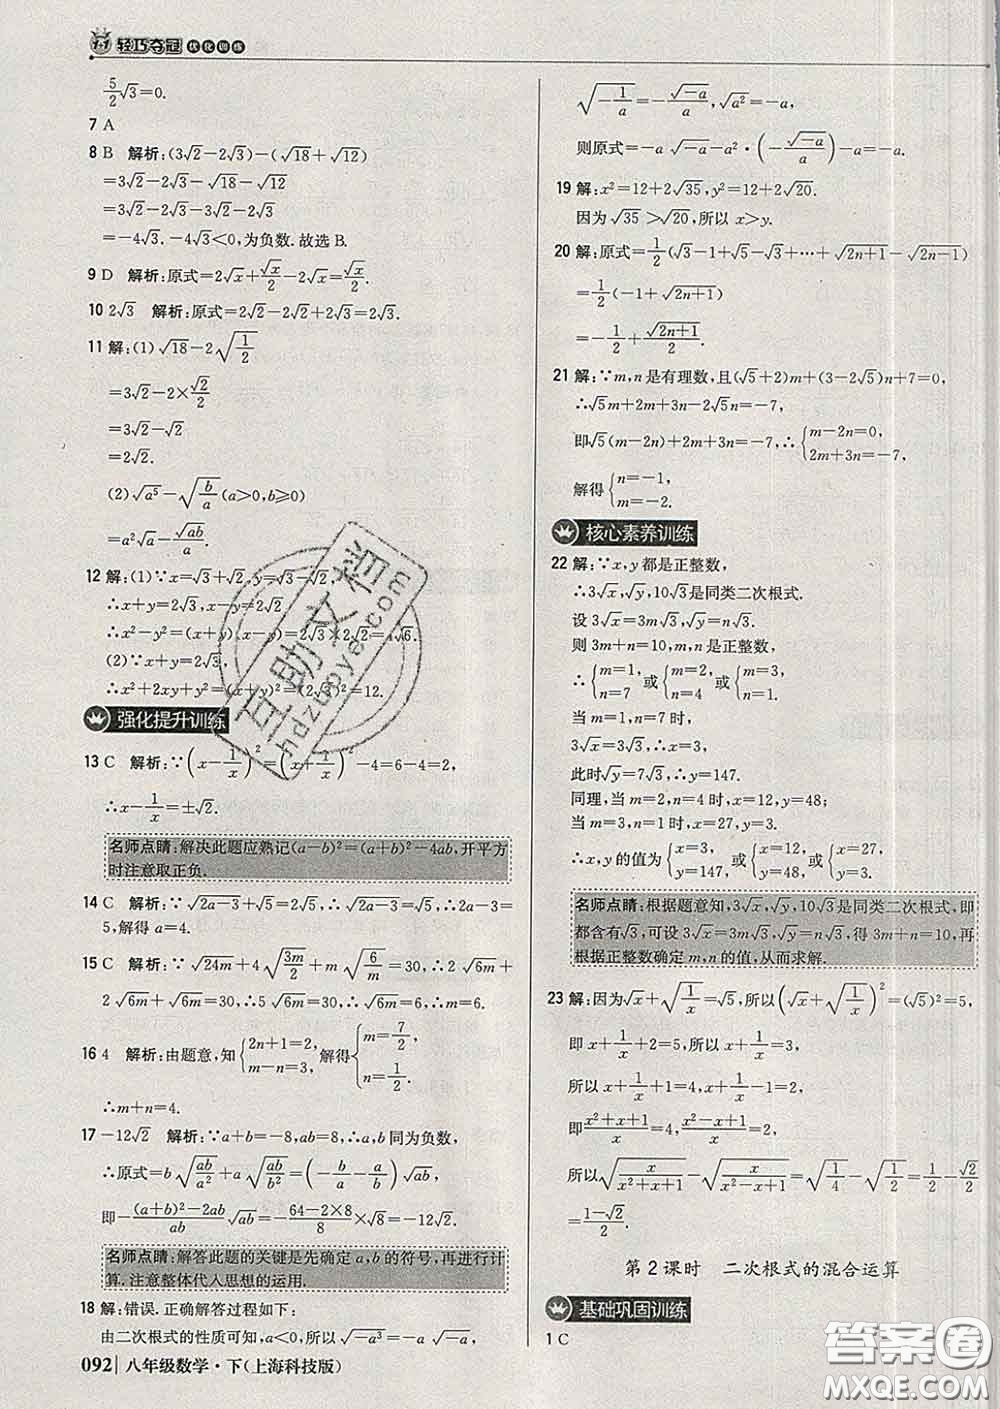 1+1 轻巧夺冠 优化训练
5/2√3=0.
7 A
8 B 解析:(3√2-2√3)-(√18+√12)
=3√2-2√3-√18-√12
=3√2-2√3-3√2-2√3
=-4√3. -4√3<0,为负数.故选 B.
9 D 解析:原式=2√x+√x/2-2√x=√x/2.
10 2√3 解析:原式=2√2-2√2+2√3=2√3.
11 解:(1)√18-2√(1/2)
=3√2-2×√2/2
=3√2-√2
=2√2.
(2)√a⁵-√(b/a)(a>0,b≥0)
=a²√a-√ab/a.
12 解:(1)∵x=√3+√2,y=√3-√2
∴x+y=2√3,x-y=2√2
∴x²-y²=(x+y)(x-y)=2√3×2√2=4√6.
(2)∵x+y=2√3,
∴x²+2xy+y²=(x+y)²=(2√3)²=12.
强化提升训练
13 C 解析:∵(x-1/x)²=(x+1/x)²-4=6-4=2,
∴x-1/x=±√2.
名师点睛:解决此题应熟记(a-b)²=(a+b)²-4ab,开平方
时注意取正负.
14 C 解析:∵√(2a-3)+√5=2√5,∴√(2a-3)=√5,∴2a-3=
5,解得 a=4.
15 C 解析:∵√24m+4√(3m/2)+m√(6/m)=30,∴2√6m+
2√6m+√6m=30,∴5√6m=30,∴√6m=6,∴m=6.
16 4 解析:由题意,知{2n+1=2, m-n=3,解得{m=7/2, n=1/2.
∴m+n=4.
17 -12√2 解析:∵a+b=-8,ab=8,∴a,b同为负数,
∴原式=b√(ab/a²)+a√(ab/b²)=(-b/a-a/b)√ab,
即-((a+b)²-2ab)/ab √ab=-(64-2×8)/8×√8=-12√2.
名师点睛:解答此题的关键是先确定 a,b 的符号,再进行计
算.注意整体代入思想的运用.
18 解:错误.正确解答过程如下:
由二次根式的性质可知,a<0,所以√(-a³)=-a√(-a),
092 八年级数学·下(上海科技版)
√(-1/a)=-√(-a)/a,√a²=-a,
则原式=-a√(-a)-a²·(-√(-a)/a)-a=-a.
19 解:x²=12+2√35,y²=12+2√20.
因为√35>√20,所以 x>y.
20 解:原式=1/2(√3-1+√5-√3+…+√(2n+1)-√(2n-1))
=1/2(-1+√(2n+1))
=-1/2+√(2n+1)/2.
21 解:∵m,n 是有理数,且(√5+2)m+(3-2√5)n+7=0,
∴√5m+2m+3n-2√5n=-7,
即√5(m-2n)+2m+3n=-7,∴{m-2n=0, 2m+3n=-7,
解得{n=-1, m=-2.
核心素养训练
22 解:∵x,y都是正整数,
∴3√x,√y,10√3是同类二次根式.
设 3√x=3m√3,√y=n√3.
则 3m+n=10,m,n 是正整数,
∴{m=1, n=7 或{m=2, n=4 或{m=3, n=1.
∴当 m=1,n=7 时,
3√x=3√3,∴x=3;
此时√y=7√3,∴y=147.
同理,当 m=2,n=4 时,x=12,y=48;
当 m=3,n=1 时,x=27,y=3.
∴x,y的值为{x=3, y=147,或{x=12, y=48,或{x=27, y=3.
名师点睛:根据题意知,3√x,√y,10√3是同类二次根式,即
都含有√3,可设 3√x=3m√3,√y=n√3,得 3m+n=10,再
根据正整数确定 m,n 的值,从而求解.
23 解:因为√x+√(1/x)=√5,所以(√x+√(1/x))²=(√5)²=5,
即 x+1/x+2=5,所以 x+1/x=3,
所以 x+1/x+1=4,x+1/x-1=2,
即(x²+x+1)/x=4,(x²-x+1)/x=2,
所以√(x/(x²+x+1))-√(x/(x²-x+1))=√(1/4)-√(1/2)=1/2-√2/2
=(1-√2)/2.
第 2 课时 二次根式的混合运算
基础巩固训练
1 C
互助文档
hdzuoye.com
答案圈
MXQE.COM